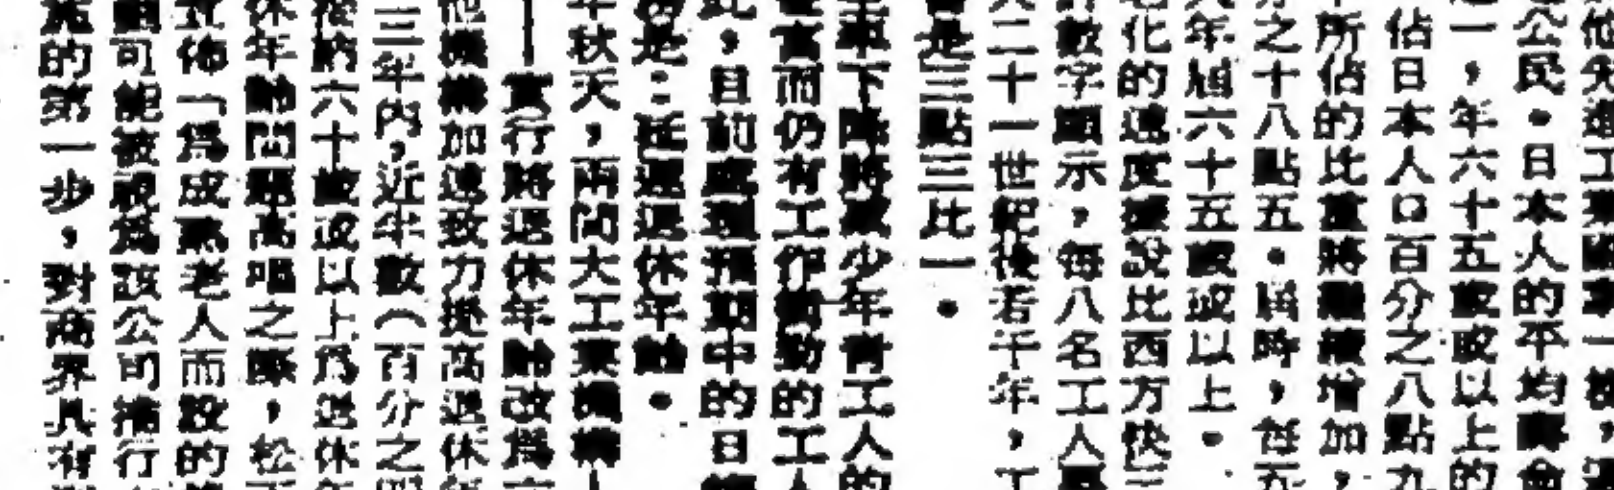 他先進工業國家一樣，
公民。日本人的平均壽命
一，年六十五歲或以上的
佔日本人口百分之八點九
所佔的比重將繼續增加，
之十八點五。屆時，每五
年屆六十五歲或以上。
化的速度據說比西方快三
數字顯示，每八名工人
二十一世紀後若干年，工
是三點三比一。
率下降將減少年青工人的
而仍有工作衝動的工人
此，目前處理預期中的日
是：延遲退休年齡。
年秋天，兩間大工業機構
——實行將退休年齡改為六
他機構加速致力提高退休年
三年內，近半數（百分之四
接納六十歲或以上為退休年
休年齡問題高唱之際，松下
宣佈「為成為老人而設的
司可能被視為該公司推行
的第一步，對商界具有